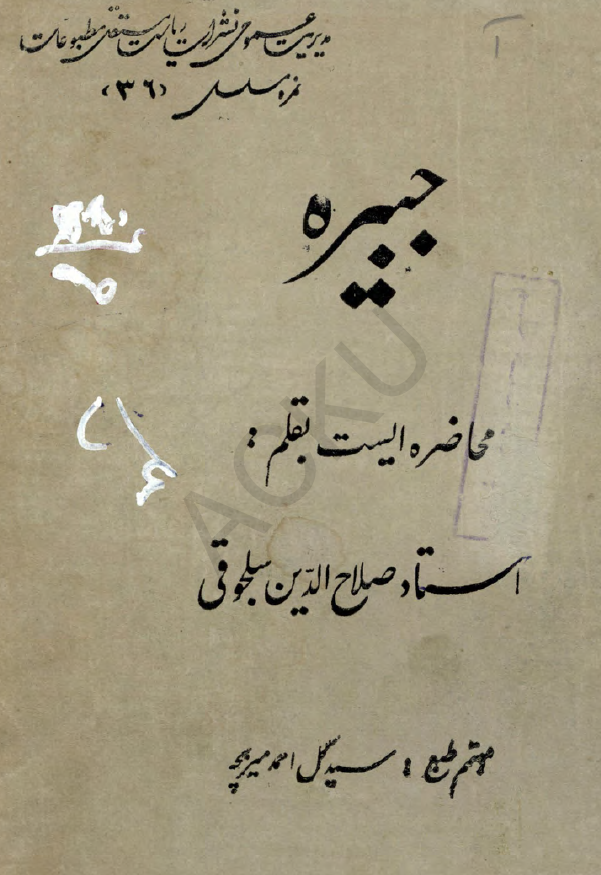 مدیریت عمومی نشرات ریاست مستقل مطبوعات
نمره مسلسل (٣٦)
جبیره
محاضره ایست بقلم :
استاد صلاح الدّین سلجوقی
مهتمم طبع : سید گل احمد میربچه
ACKU